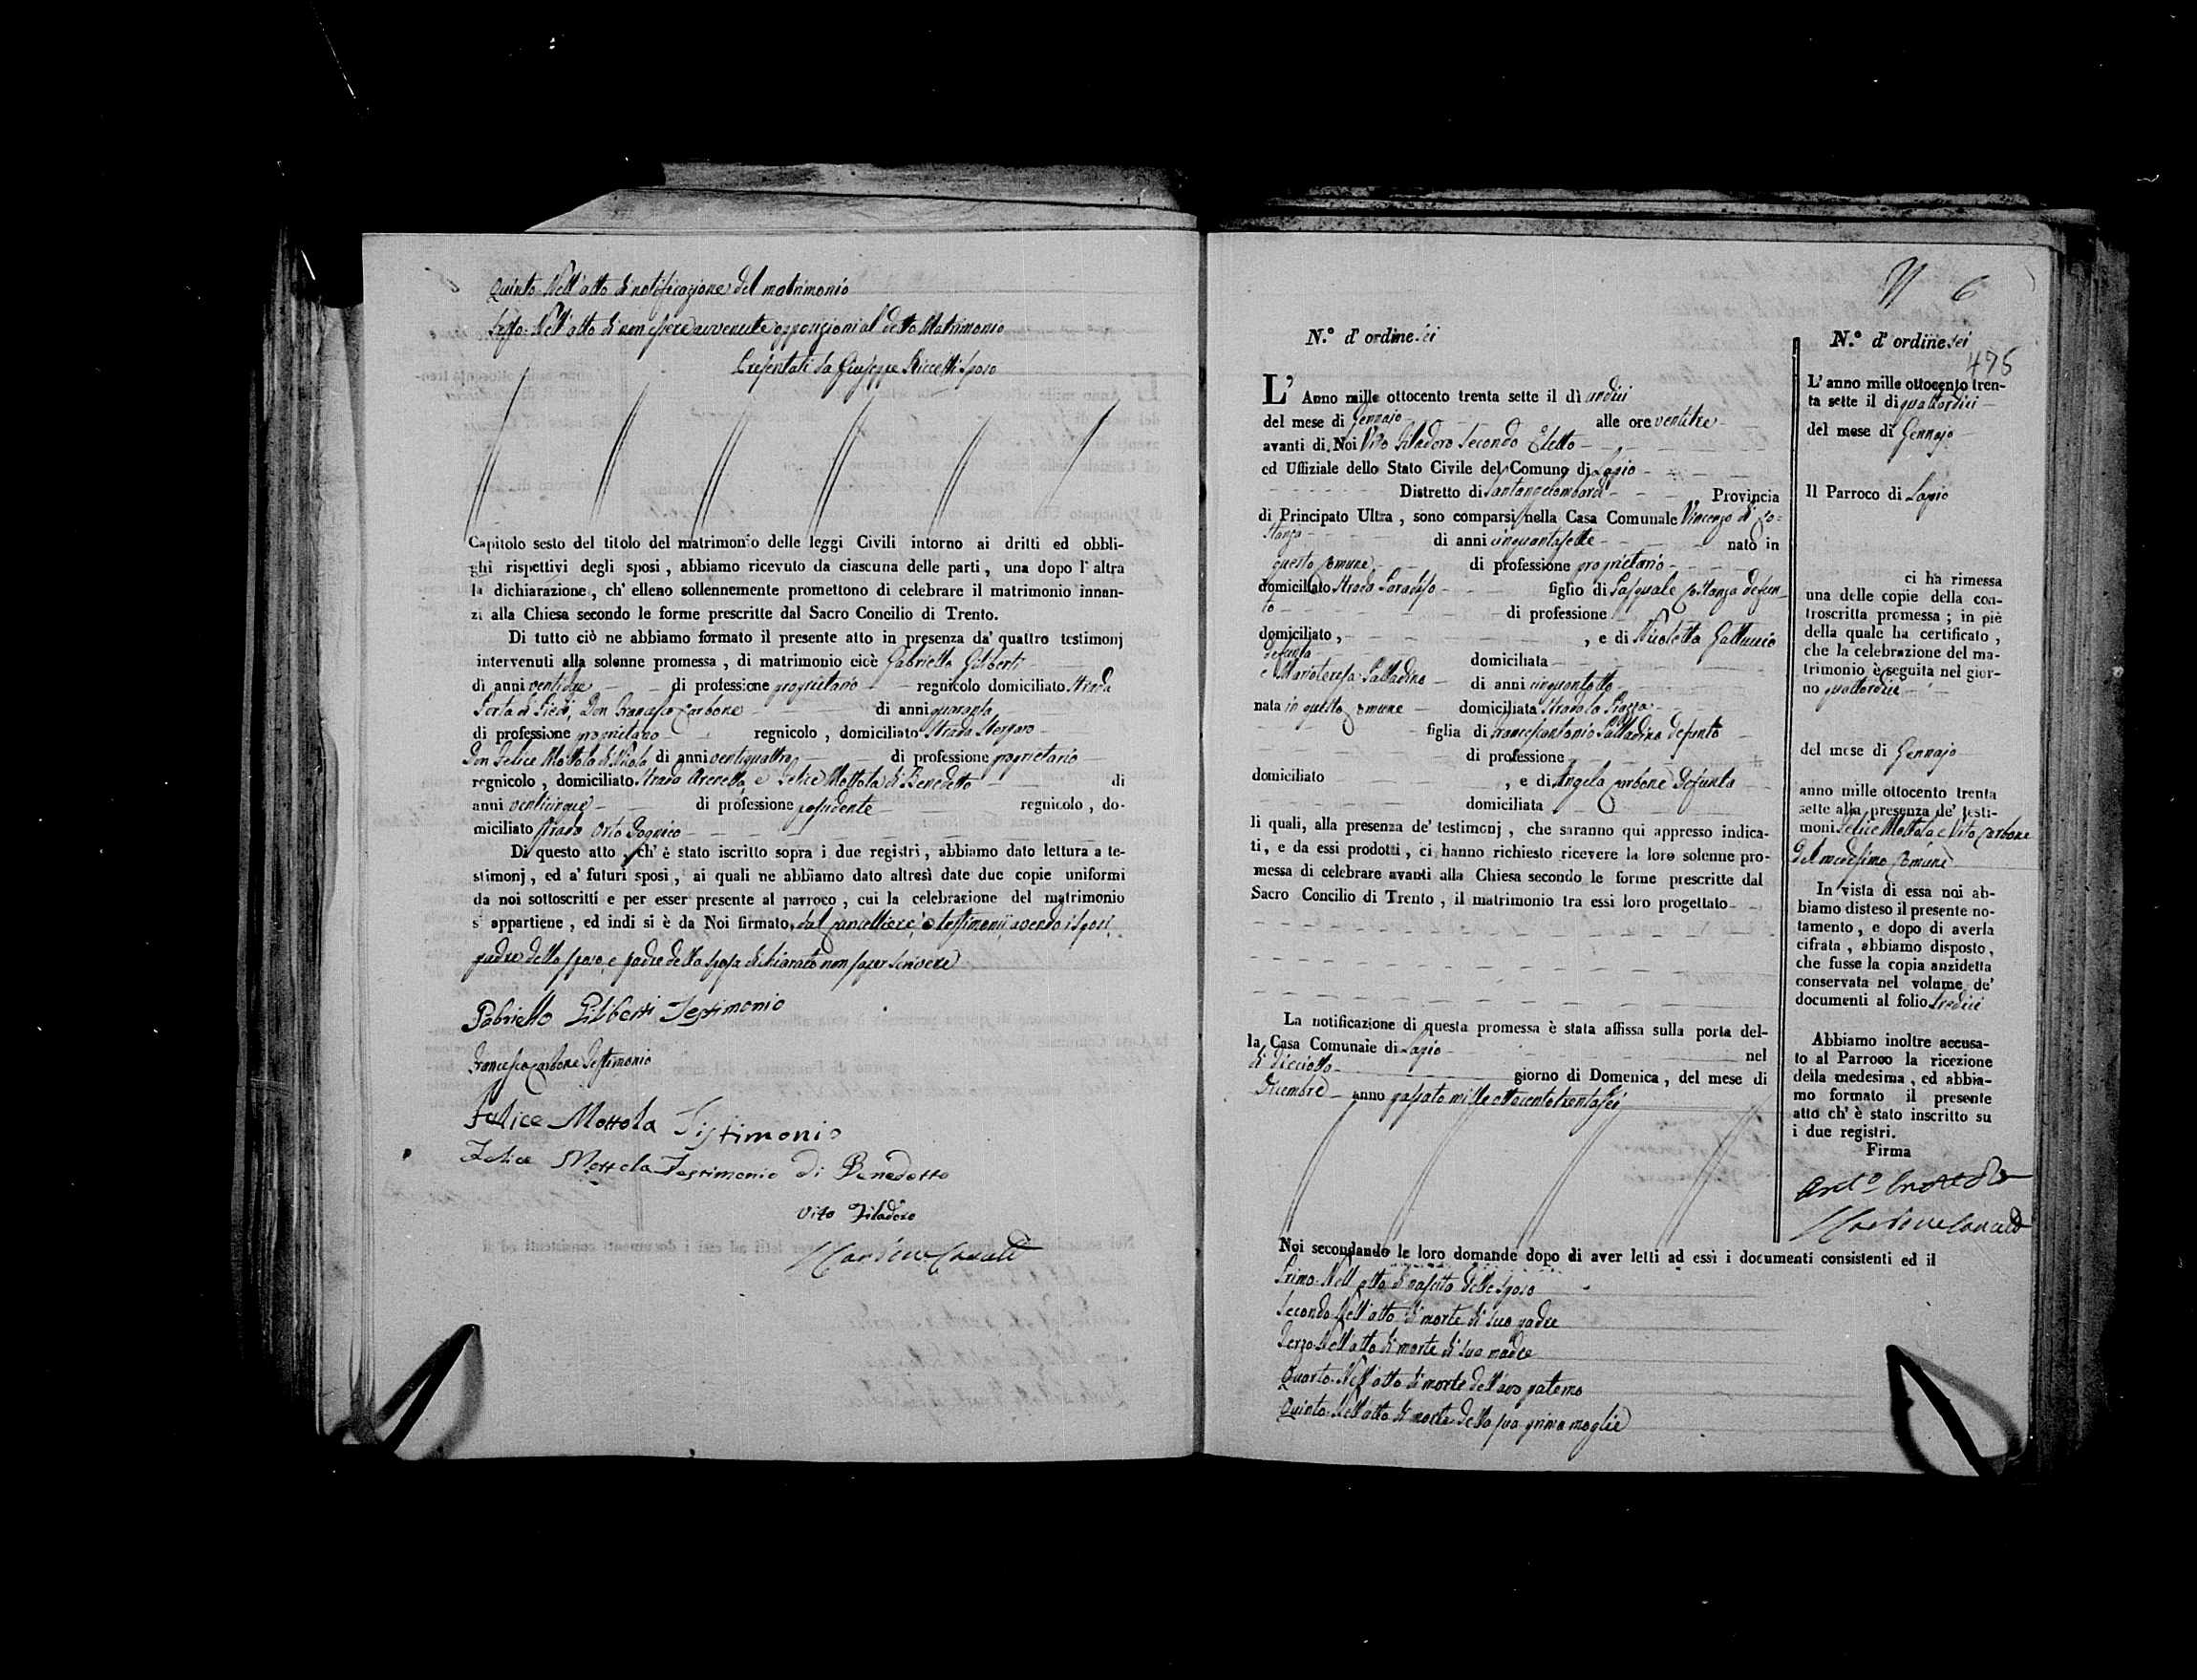 Quinto. Nell'atto di notificazione del matrimonio
Sesto. Nell'atto di non essere avvenute opposizioni al detto Matrimonio
Presentati da Giuseppe Riccetti sposo
Capitolo sesto del titolo del matrimonio delle leggi Civili intorno ai dritti ed obbli-
ghi rispettivi degli sposi, abbiamo ricevuto da ciascuna delle parti, una dopo l'altra
la dichiarazione, ch'elleno sollennemente promettono di celebrare il matrimonio innan-
zi alla Chiesa secondo le forme prescritte dal Sacro Concilio di Trento.
Di tutto ciò ne abbiamo formato il presente atto in presenza da' quattro testimonj
intervenuti alla solenne promessa, di matrimonio cioè Gabriello Giliberti
di anni ventidue di professione proprietario regnicolo domiciliato Strada
Porta di Piedi, Don Francesco Carbone di anni quaranta
di professione proprietario regnicolo, domiciliato Strada
Don Felice Mottola di Nicola di anni ventiquattro di professione proprietario
regnicolo, domiciliato Strada Arenella, e Felice Mottola di Benedetto di
anni venticinque di professione possidente regnicolo, do-
miciliato strada Orto
Di questo atto, ch'è stato iscritto sopra i due registri, abbiamo dato lettura a te-
stimonj, ed a' futuri sposi, ai quali ne abbiamo dato altresì date due copie uniformi
da noi sottoscritti e per esser presente al parroco, cui la celebrazione del matrimonio
s'appartiene, ed indi si è da Noi firmato, dal Cancelliere, e testimonii avendo i sposi,
padre dello sposo, e padre della sposa dichiarato non saper scrivere
Gabriello Giliberti Testimonio
Francesco Carbone Testimonio
Felice Mottola Tistimonio
Felice Mottola Testimonio di Benedetto
Vito Filadoro
N 6
N.º d'ordine sei
L'Anno mille ottocento trenta sette il dì undici
del mese di Gennajo alle ore ventitre
avanti di Noi Vito Filadoro Secondo Eletto
ed Uffiziale dello Stato Civile del Comune di Lapio
Distretto di Santangelombardi Provincia
di Principato Ultra, sono comparsi nella Casa Comunale Vincenzo di Co=
stanza di anni cinquantasette nato in
questo Comune di professione proprietario
domiciliato Strada Paradiso figlio di Pasquale Costanza defun-
to di professione
domiciliato, , e di Nicoletta Gattuccio
defunta domiciliata
e Mariateresa Palladino di anni cinquantotto
nata in questo Comune domiciliata Strada la Piazza
figlia di Francescantonio Palladino defunto
di professione
domiciliato , e di Angela Carbone Defunta
domiciliata
li quali, alla presenza de' testimonj, che saranno qui appresso indica-
ti, e da essi prodotti, ci hanno richiesto ricevere la loro solenne pro-
messa di celebrare avanti alla Chiesa secondo le forme prescritte dal
Sacro Concilio di Trento, il matrimonio tra essi loro progettato
La notificazione di questa promessa è stata affissa sulla porta del-
la Casa Comunale di Lapio nel
dì dieciotto giorno di Domenica, del mese di
Dicembre anno passato mille ottocentotrentasei
Noi secondando le loro domande dopo di aver letti ad essi i documenti consistenti ed il
Primo. Nell'atto di nascita dello sposo
Secondo. Nell'atto di morte di suo padre
Terzo. Nell'atto di morte di sua madre
Quarto. Nell'atto di morte dell'avo paterno
Quinto. Nell'atto di morte della sua prima moglie
N.º d'ordine sei
476
L'anno mille ottocento tren-
ta sette il dì quattordici
del mese di Gennajo
Il Parroco di Lapio
ci ha rimessa
una delle copie della con-
troscritta promessa; in piè
della quale ha certificato,
che la celebrazione del ma-
trimonio è seguita nel gior-
no quattordici
del mese di Gennajo
anno mille ottocento trenta
sette alla presenza de' testi-
moni Felice Mottola e Vito Carbone
del medesimo Comune
In vista di essa noi ab-
biamo disteso il presente no-
tamento, e dopo di averla
cifrata, abbiamo disposto,
che fusse la copia anzidetta
conservata nel volume de'
documenti al folio tredici
Abbiamo inoltre accusa-
to al Parroco la ricezione
della medesima, ed abbia-
mo formato il presente
atto ch'è stato inscritto su
i due registri.
Firma